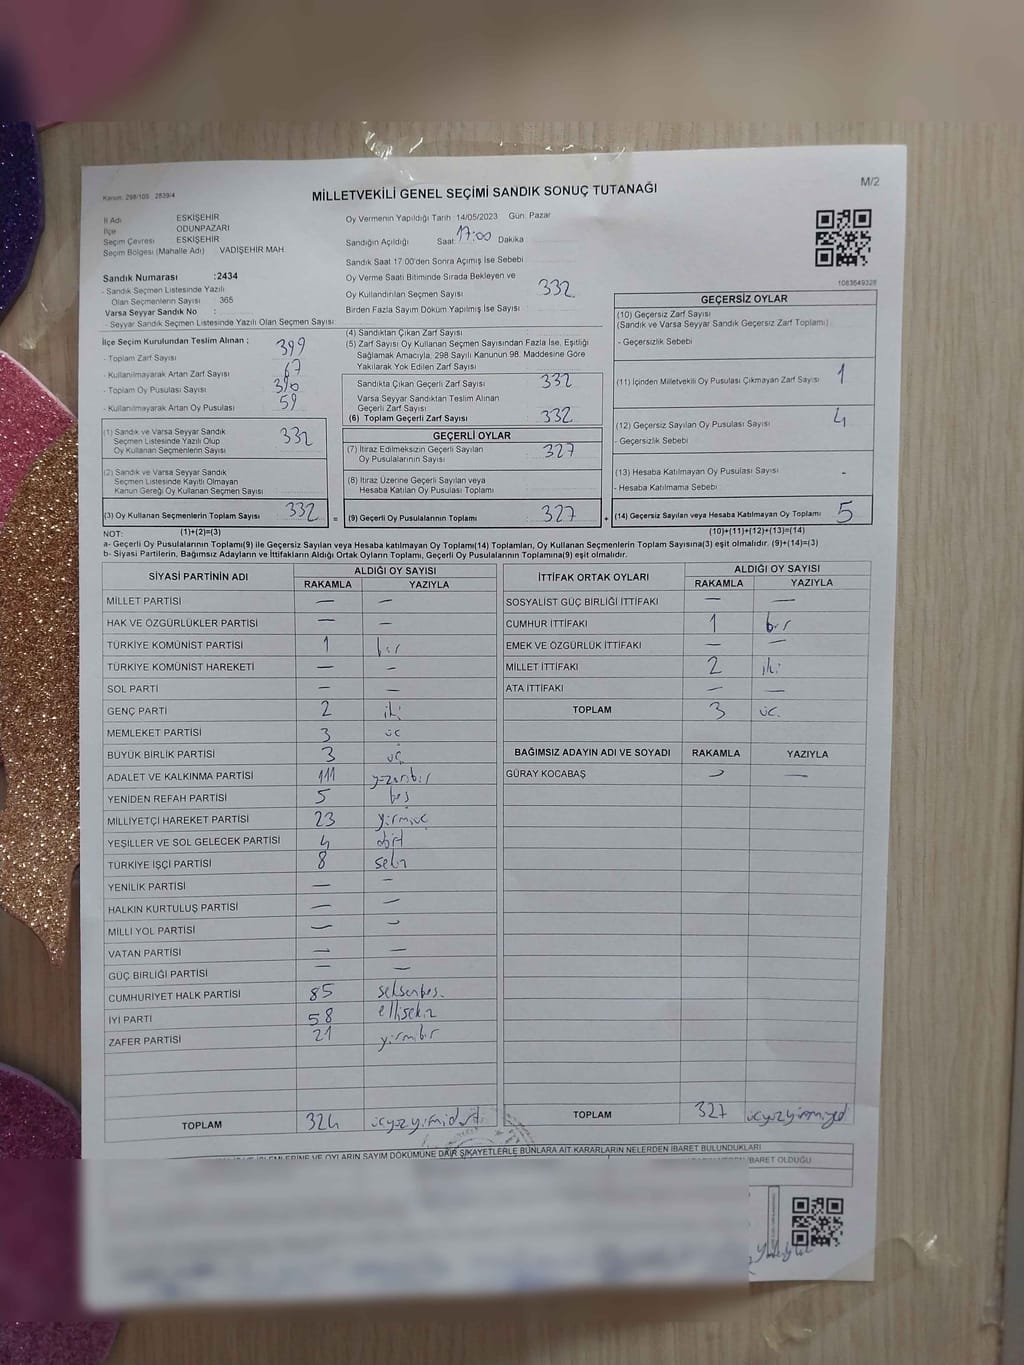 Kanun: 298/105 2839/4
MİLLETVEKİLİ GENEL SEÇİMİ SANDIK SONUÇ TUTANAĞI
M/2
İl Adı ESKİŞEHİR
İlçe ODUNPAZARI
Seçim Çevresi ESKİŞEHİR
Seçim Bölgesi (Mahalle Adı) VADİŞEHİR MAH
Sandık Numarası :2434
- Sandık Seçmen Listesinde Yazılı
Olan Seçmenlerin Sayısı : 365
Varsa Seyyar Sandık No :
- Seyyar Sandık Seçmen Listesinde Yazılı Olan Seçmen Sayısı :
Oy Vermenin Yapıldığı Tarih :14/05/2023 Gün: Pazar
Sandığın Açıldığı Saat 17:00 Dakika
Sandık Saat 17:00'den Sonra Açımış İse Sebebi
Oy Verme Saati Bitiminde Sırada Bekleyen ve
Oy Kullandırılan Seçmen Sayısı 332
Birden Fazla Sayım Döküm Yapılmış İse Sayısı :
1083649328
İlçe Seçim Kurulundan Teslim Alınan ;
- Toplam Zarf Sayısı 399
- Kullanılmayarak Artan Zarf Sayısı 67
- Toplam Oy Pusulası Sayısı 390
- Kullanılmayarak Artan Oy Pusulası 59
(1) Sandık ve Varsa Seyyar Sandık
Seçmen Listesinde Yazılı Olup
Oy Kullanan Seçmenlerin Sayısı 332
(2) Sandık ve Varsa Seyyar Sandık
Seçmen Listesinde Kayıtlı Olmayan
Kanun Gereği Oy Kullanan Seçmen Sayısı
(3) Oy Kullanan Seçmenlerin Toplam Sayısı 332 =
(4) Sandıktan Çıkan Zarf Sayısı
(5) Zarf Sayısı Oy Kullanan Seçmen Sayısından Fazla İse, Eşitliği
Sağlamak Amacıyla, 298 Sayılı Kanunun 98. Maddesine Göre
Yakılarak Yok Edilen Zarf Sayısı
Sandıkta Çıkan Geçerli Zarf Sayısı 332
Varsa Seyyar Sandıktan Teslim Alınan
Geçerli Zarf Sayısı
(6) Toplam Geçerli Zarf Sayısı 332
GEÇERLİ OYLAR
(7) İtiraz Edilmeksizin Geçerli Sayılan
Oy Pusulalarının Sayısı 327
(8) İtiraz Üzerine Geçerli Sayılan veya
Hesaba Katılan Oy Pusulası Toplamı
(9) Geçerli Oy Pusulalarının Toplamı 327 +
GEÇERSİZ OYLAR
(10) Geçersiz Zarf Sayısı
(Sandık ve Varsa Seyyar Sandık Geçersiz Zarf Toplamı)
- Geçersizlik Sebebi
(11) İçinden Milletvekili Oy Pusulası Çıkmayan Zarf Sayısı 1
(12) Geçersiz Sayılan Oy Pusulası Sayısı 4
- Geçersizlik Sebebi
(13) Hesaba Katılmayan Oy Pusulası Sayısı -
- Hesaba Katılmama Sebebi
(14) Geçersiz Sayılan veya Hesaba Katılmayan Oy Toplamı 5
NOT: (1)+(2)=(3) (10)+(11)+(12)+(13)=(14)
a- Geçerli Oy Pusulalarının Toplamı(9) ile Geçersiz Sayılan veya Hesaba katılmayan Oy Toplamı(14) Toplamları, Oy Kullanan Seçmenlerin Toplam Sayısına(3) eşit olmalıdır. (9)+(14)=(3)
b- Siyasi Partilerin, Bağımsız Adayların ve İttifakların Aldığı Ortak Oyların Toplamı, Geçerli Oy Pusulalarının Toplamına(9) eşit olmalıdır.
SİYASİ PARTİNİN ADI ALDIĞI OY SAYISI
RAKAMLA YAZIYLA
MİLLET PARTİSİ — —
HAK VE ÖZGÜRLÜKLER PARTİSİ — —
TÜRKİYE KOMÜNİST PARTİSİ 1 bir
TÜRKİYE KOMÜNİST HAREKETİ — —
SOL PARTİ — —
GENÇ PARTİ 2 iki
MEMLEKET PARTİSİ 3 üç
BÜYÜK BİRLİK PARTİSİ 3 üç
ADALET VE KALKINMA PARTİSİ 111 yüzonbir
YENİDEN REFAH PARTİSİ 5 beş
MİLLİYETÇİ HAREKET PARTİSİ 23 yirmiüç
YEŞİLLER VE SOL GELECEK PARTİSİ 4 dört
TÜRKİYE İŞÇİ PARTİSİ 8 sekiz
YENİLİK PARTİSİ — —
HALKIN KURTULUŞ PARTİSİ — —
MİLLİ YOL PARTİSİ — —
VATAN PARTİSİ — —
GÜÇ BİRLİĞİ PARTİSİ — —
CUMHURİYET HALK PARTİSİ 85 seksenbeş.
İYİ PARTİ 58 ellisekiz
ZAFER PARTİSİ 21 yirmibir
TOPLAM 324 üçyüzyirmidört
İTTİFAK ORTAK OYLARI ALDIĞI OY SAYISI
RAKAMLA YAZIYLA
SOSYALİST GÜÇ BİRLİĞİ İTTİFAKI — —
CUMHUR İTTİFAKI 1 bir
EMEK VE ÖZGÜRLÜK İTTİFAKI — —
MİLLET İTTİFAKI 2 iki
ATA İTTİFAKI — —
TOPLAM 3 üç.
BAĞIMSIZ ADAYIN ADI VE SOYADI RAKAMLA YAZIYLA
GÜRAY KOCABAŞ — —
TOPLAM 327 üçyüzyirmiyedi
İŞLEMLERİNE VE OYLARIN SAYIM DÖKÜMÜNE DAİR ŞİKAYETLERLE BUNLARA AİT KARARLARIN NELERDEN İBARET BULUNDUKLARI
İBARET OLDUĞU